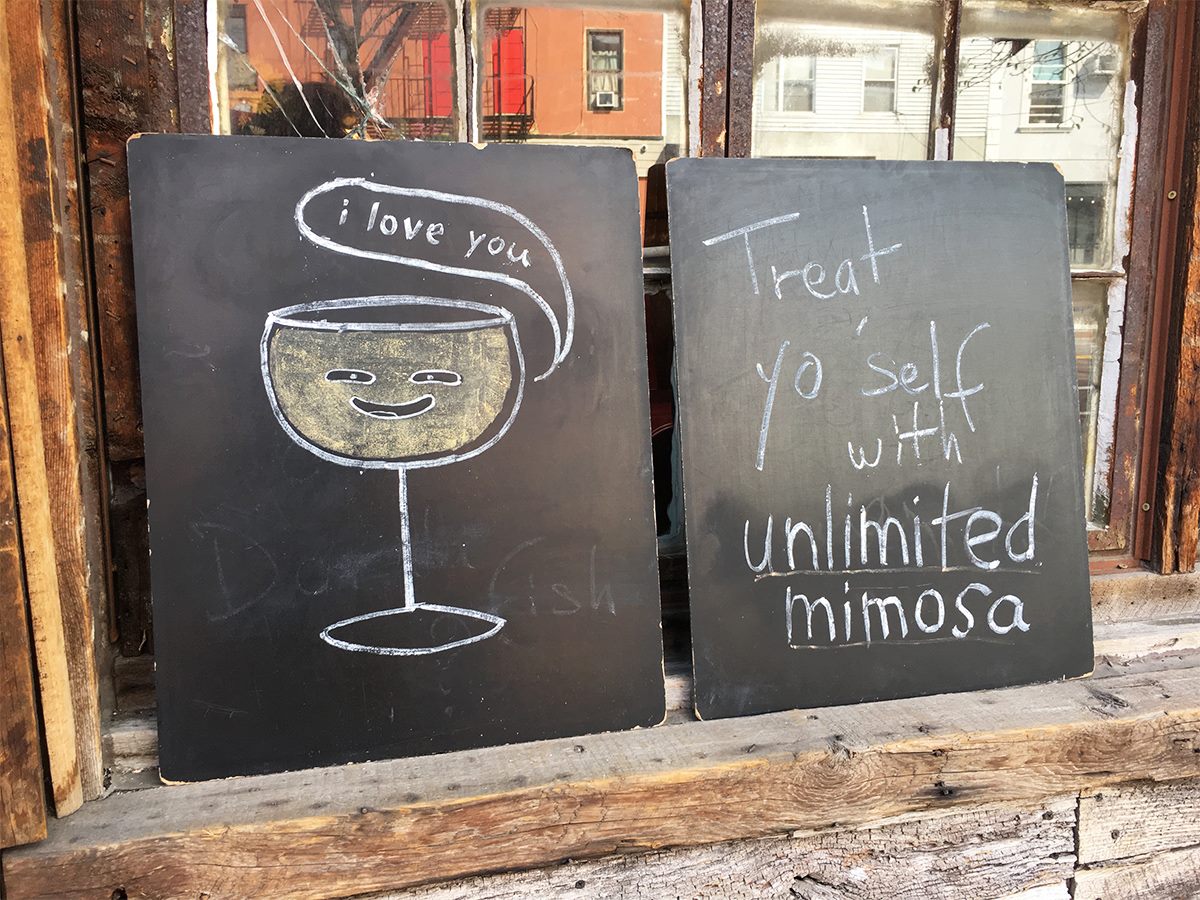 i love you
Treat
yo'self
with
unlimited
mimosa